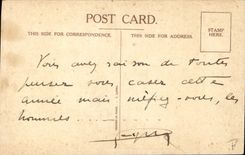 POST CARD.
THIS SIDE FOR CORRESPONDENCE.
THIS SIDE FOR ADDRESS.
STAMP
HERE
Vous avez raison de toutes
pensez vous caser cette
année mais méfiez-vous, les
hommes ....